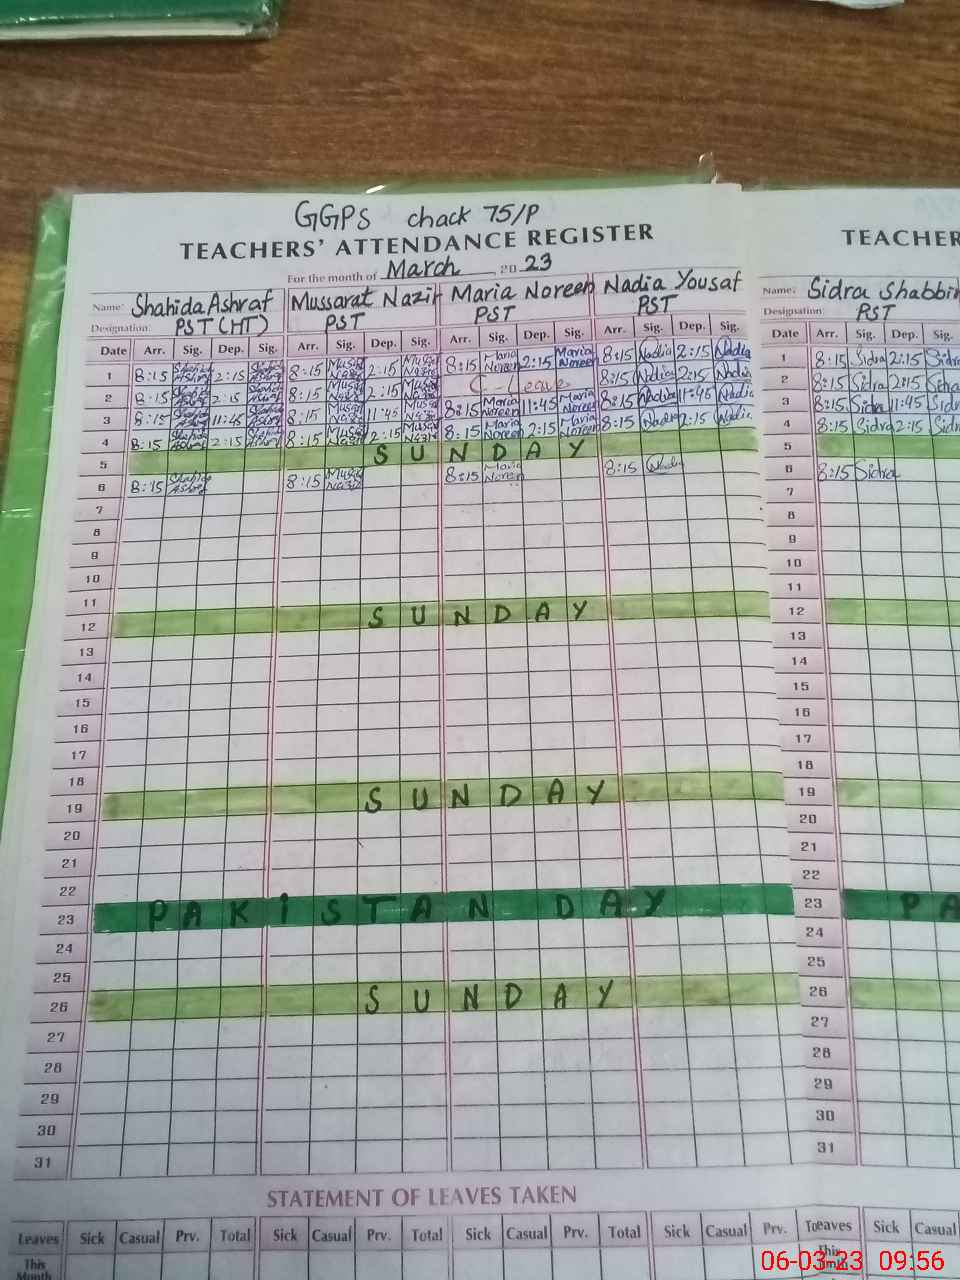 GGPS chack 75/P
TEACHERS' ATTENDANCE REGISTER
For the month of March, 2023
Name: Shahida Ashraf Mussarat Nazir Maria Noreen Nadia Yousaf
Designation: PST (HT) PST PST PST
Date Arr. Sig. Dep. Sig. Arr. Sig. Dep. Sig. Arr. Sig. Dep. Sig. Arr. Sig. Dep. Sig.
1 8:15 2:15 8:15 2:15 8:15 Maria Noreen 2:15 Maria Noreen 8:15 Nadia 2:15 Nadia
2 8:15 2:15 8:15 2:15 C-Leave 8:15 Nadia 2:15 Nadia
3 8:15 11:45 8:15 11:45 8:15 Maria Noreen 11:45 Maria Noreen 8:15 Nadia 11:45 Nadia
4 8:15 2:15 8:15 2:15 8:15 Maria Noreen 2:15 Maria Noreen 8:15 Nadia 2:15 Nadia
5 SUNDAY
6 8:15 8:15 8:15 Maria Noreen 8:15 Nadia
7
8
9
10
11
12 SUNDAY
13
14
15
16
17
18
19 SUNDAY
20
21
22
23 PAKISTAN DAY
24
25
26 SUNDAY
27
28
29
30
31
STATEMENT OF LEAVES TAKEN
Leaves Sick Casual Prv. Total Sick Casual Prv. Total Sick Casual Prv. Total Sick Casual Prv.
This Month
TEACHER
Name: Sidra Shabbir
Designation: PST
Date Arr. Sig. Dep. Sig.
1 8:15 Sidra 2:15 Sidra
2 8:15 Sidra 2:15
3 8:15 Sidra 11:45 Sidra
4 8:15 Sidra 2:15 Sidra
5
6 8:15 Sidra
7
8
9
10
11
12
13
14
15
16
17
18
19
20
21
22
23 PA
24
25
26
27
28
29
30
31
Leaves Sick Casual
This
06-03-23 09:56